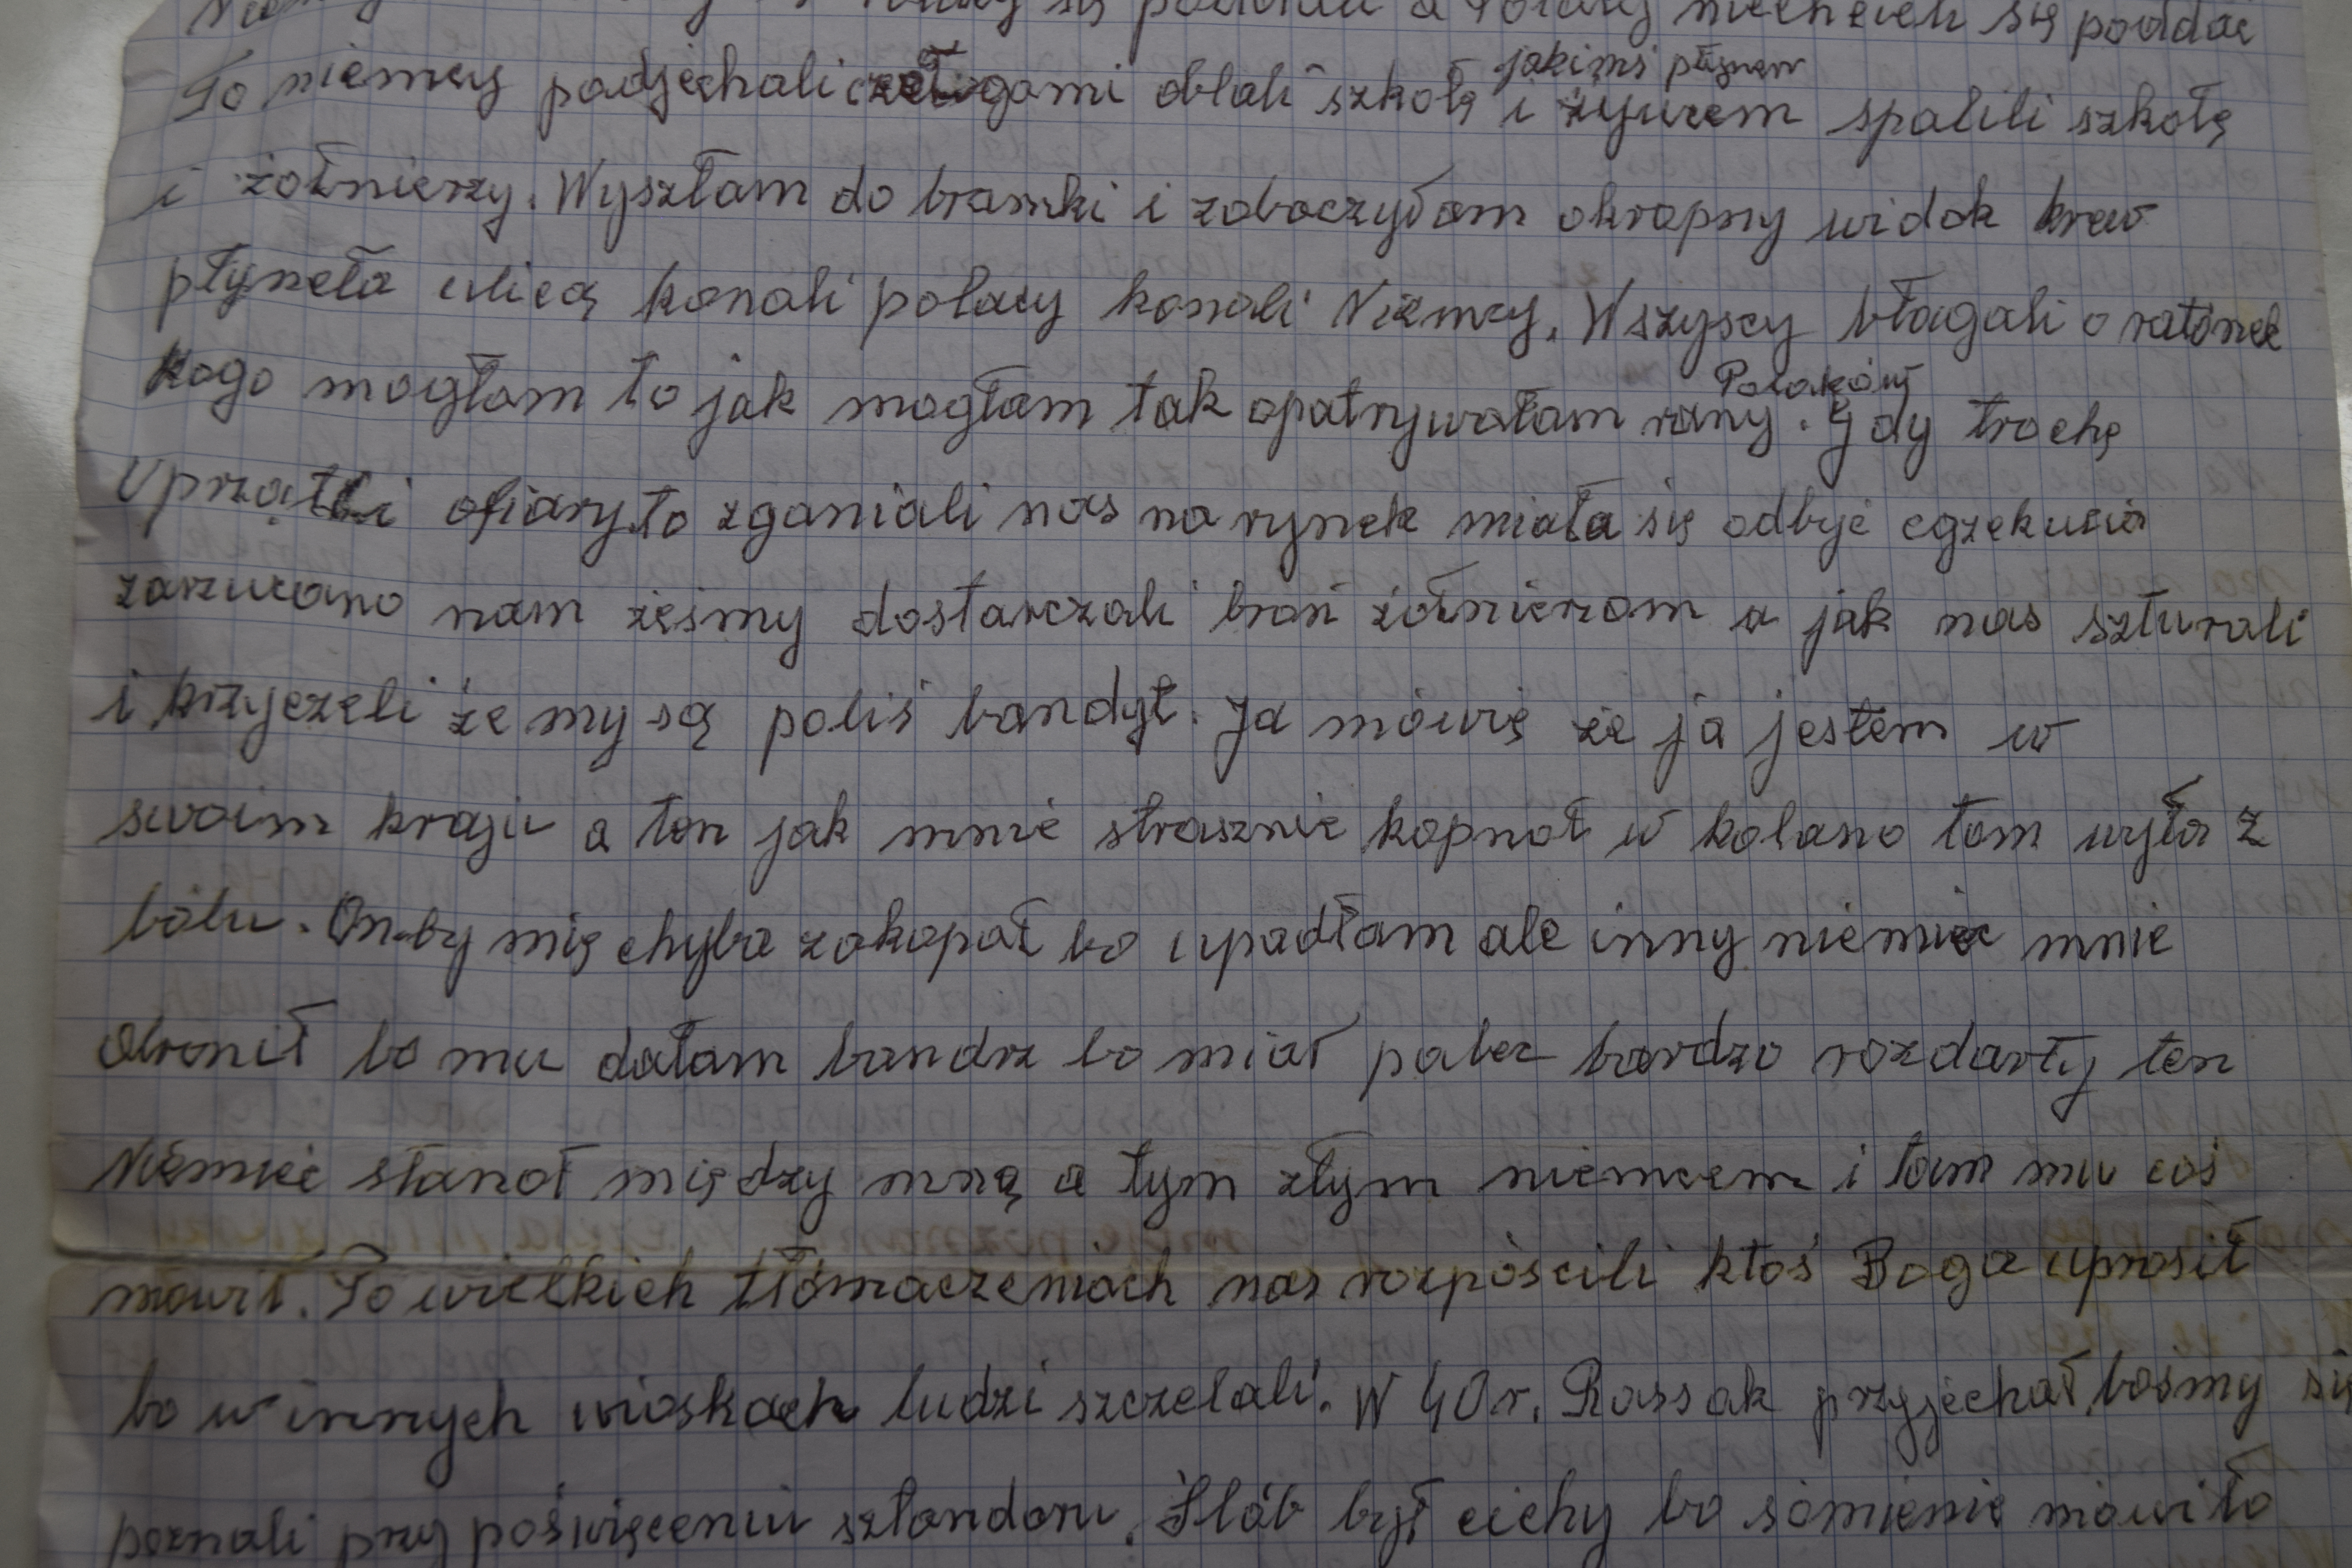 się poddać a Polacy niechcieli się poddać
To niemcy podjechali czołgami oblali szkołę jakimś płynem i żywcem spalili szkołę
i żołnierzy. Wyszłam do bramki i zobaczyłam okropny widok krew
płyneła ulicą konali polacy konali Niemcy. Wszyscy błagali o ratónek
kogo mogłam to jak mogłam tak opatrywałam rany Polaków. Gdy trochę
uprzątli ofiary to zganiali nas na rynek miała się odbyć egzekucia
zarzucano nam żeśmy dostarczali broń żołnierzom a jak nas szturali
i krzyczeli że my są poliś bandyt. Ja mówię że ja jestem w
swoim kraju a ten jak mnie strasznie kopnoł w kolano tom wyła z
bólu. On-by mię chyba zakopał bo upadłam ale inny niemiec mnie
obronił bo mu dałam bandrz bo miał palec bardzo rozdarty ten
Niemiec stanoł między mną a tym złym niemcem i tam mu coś
mówił. Po wielkich tłómaczeniach nas rozpóścili ktoś Boga uprosił
bo w innych wioskach ludzi szczelali. W 40 r. Rassak przyjechał bośmy się
poznali przy poświęceniu sztandaru. Ślób był cichy bo sómienie mówiło